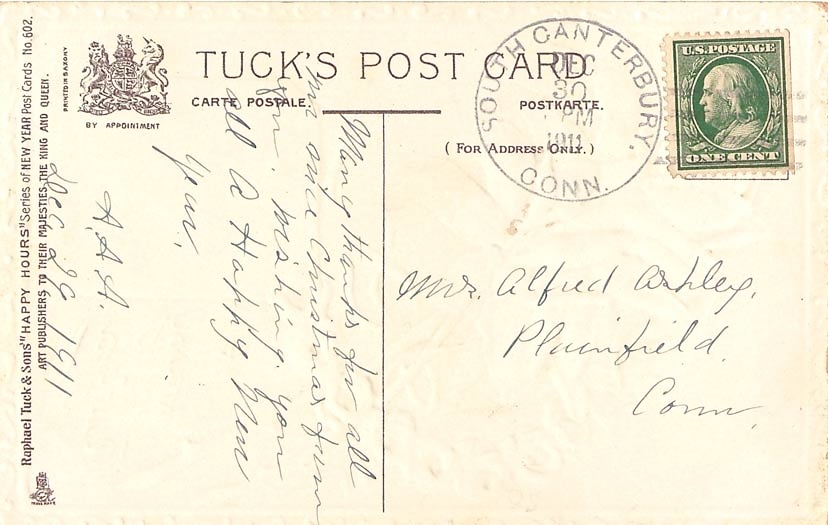 TUCK'S POST CARD
CARTE POSTALE.
POSTKARTE.
(FOR ADDRESS ONLY.)
PRINTED IN SAXONY
BY APPOINTMENT
Raphael Tuck & Sons' "HAPPY HOURS" Series of NEW YEAR Post Cards No. 602.
ART PUBLISHERS TO THEIR MAJESTIES THE KING AND QUEEN.
TRADE MARK
SOUTH CANTERBURY,
DEC
30
PM
1911
CONN.
U.S. POSTAGE
ONE CENT
Many thanks for all
our nice Christmas from
you, wishing you
all A Happy New
Year,
A.A.A.
Dec 29 1911
Mrs. Alfred Ashley,
Plainfield,
Conn,